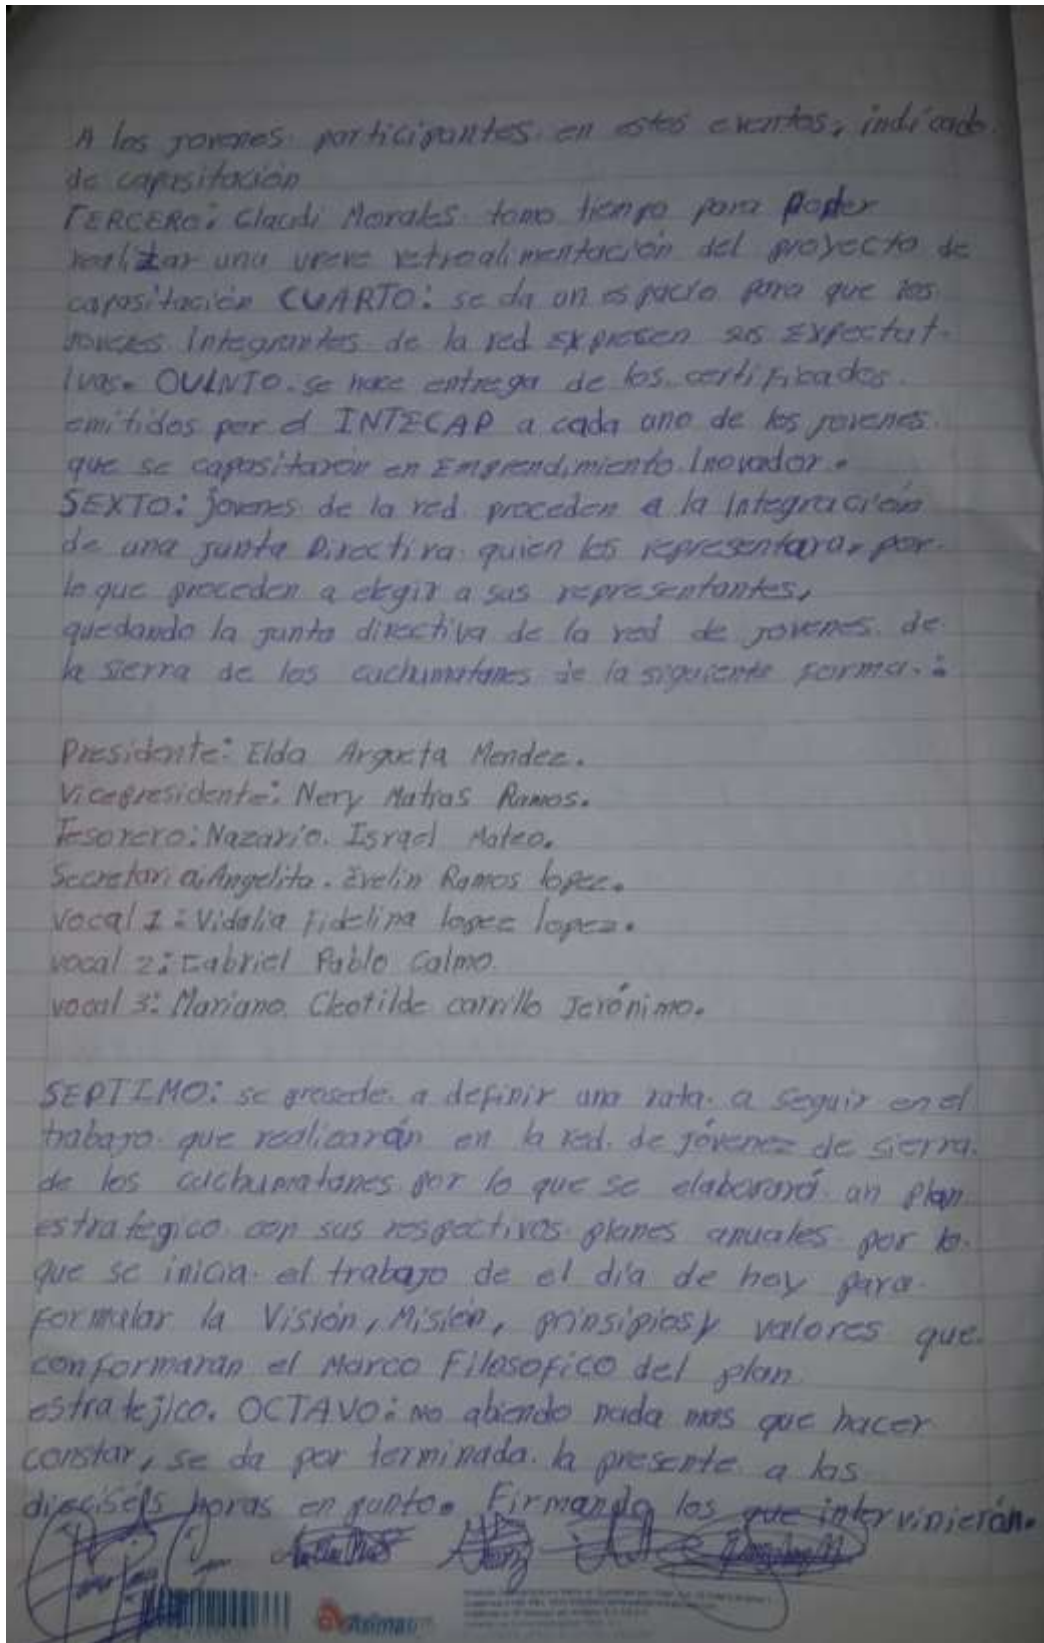 A los jovenes participantes en estos eventos, indicado
de capasitación
TERCERO: Claudi Morales tomo tiempo para Poder
realizar una vreve retroalimentación del proyecto de
capasitación CUARTO: se da un espacio para que los
jovenes Integrantes de la red Expresen sus Expectat-
ivas. QUINTO. se hace entrega de los certificados
emitidos por el INTECAP a cada uno de los jovenes
que se capasitarón en Emprendimiento Inovador.
SEXTO: jovenes de la red proceden a la Integración
de una junta Directiva quien los representara, por
lo que proceden a elegir a sus representantes,
quedando la junta directiva de la red de jovenes de
la sierra de los cuchumatanes de la siguiente forma.:
Presidente: Elda Argueta Mendez.
Vicepresidente: Nery Matias Ramos.
Tesorero: Nazario. Israel Mateo.
Secretaria: Angelita. Evelin Ramos lopez.
Vocal 1: Vidalia Fidelina lopez lopez.
vocal 2: Gabriel Pablo Calmo.
vocal 3: Mariano Cleotilde carrillo Jerónimo.
SEPTIMO: se prosede a definir una ruta a seguir en el
trabajo que realizarán en la red de jóvenez de sierra
de los cuchumatanes por lo que se elaborará un plan
estrategico con sus respectivos planes anuales por lo
que se inicia el trabajo de el día de hoy para
formular la Visión, Misión, prinsipios y valores que
conformaran el Marco Filosofico del plan
estratejico. OCTAVO: no abiendo nada mas que hacer
constar, se da por terminada la presente a las
dieciséis horas en punto. Firmando los que intervinierón.